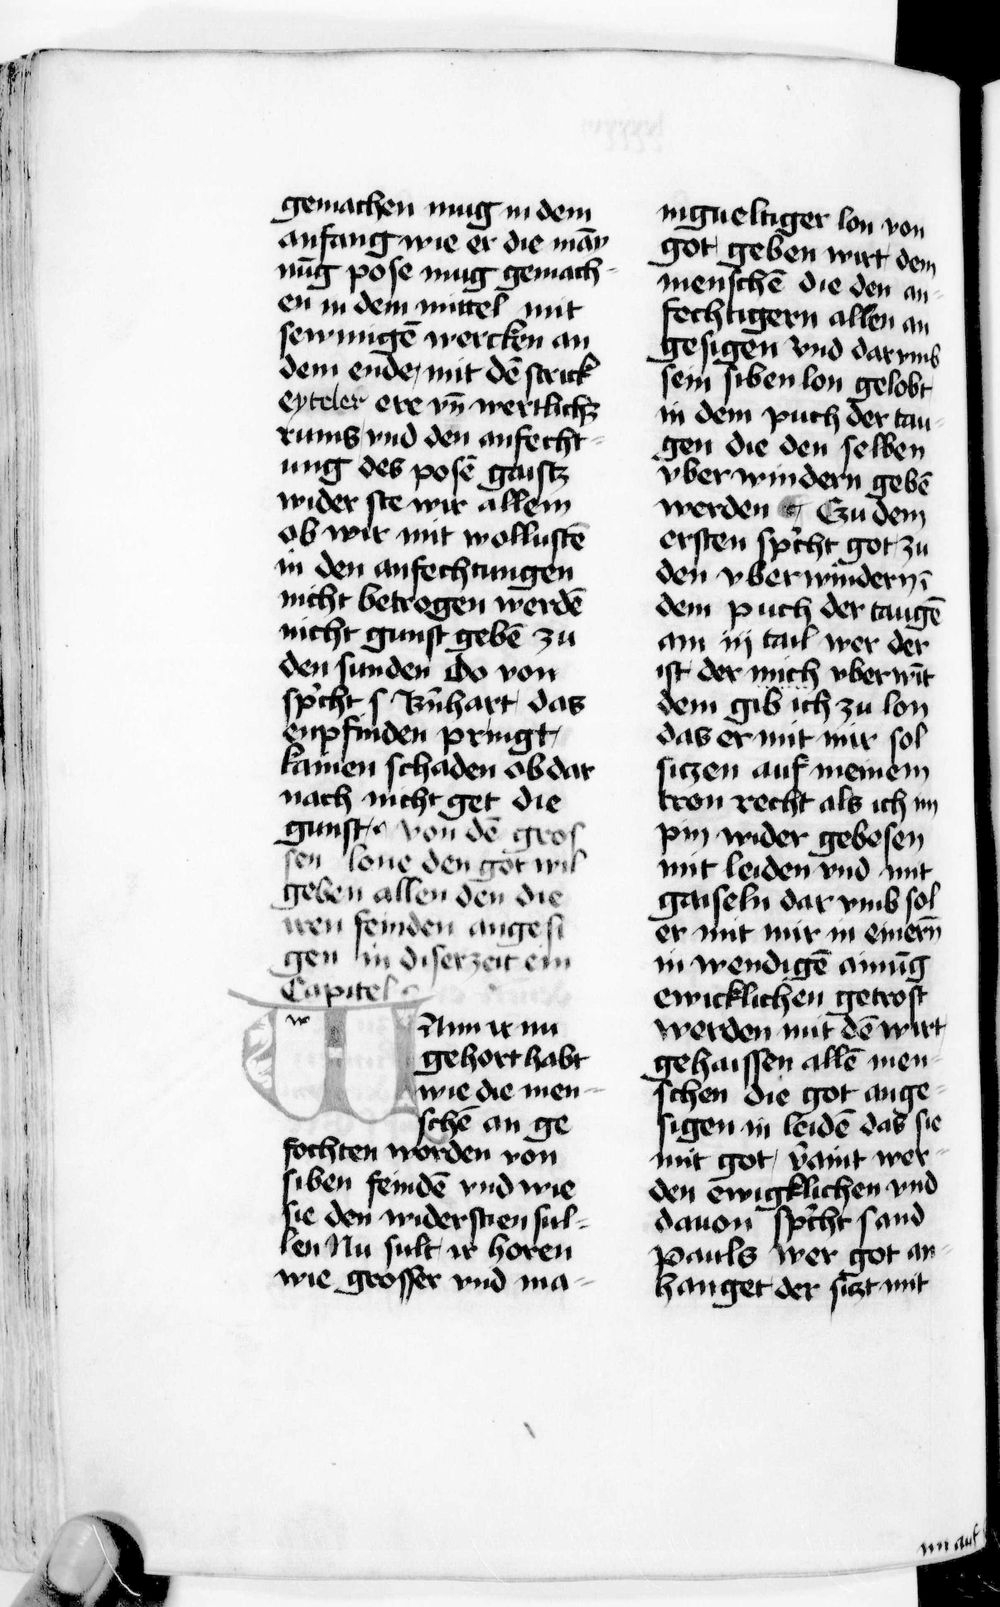 gemachen mug in dem
anfang wie er die māy
nūg pose mug gemach-
en in dem mittel mit
sewmigē wercken an
dem ende, mit dē strick
eyteler ere vn̄ wertlichs
rums vnd den anfecht-
ung des posē gaistz
wider ste wir allein
ob wir mit wollustē
in den anfechtungen
nicht betrogen werdē
nicht gunst gebē zu
den sunden Do von
sp̄cht s Bn̄hart das
enpfinden pringt
kainen schaden ob dar
nach nicht get die
gunst. von dē gros
sen lone den got wil
geben allen den die
iren feinden angesi
gen in diser zeit ein
Capitel
W
ān ir nu
gehort habt
wie die men-
schē an ge
fochten worden von
siben feindē vnd wie
sie den widersten sul-
len Nu sult ir horen
wie grosser vnd ma-
nigueltiger lon von
got geben wirt dem
menschē die den an-
fechtigern allen an
gesigen vnd dar vmb
sein siben lon gelobt
in dem puch der tau-
gen die den selben
vber windern gebē
werden Czu dem
ersten sp̄cht got zu
den vber windern ī
dem puch der taugē
am iij tail wer der
ist der mich vber wīt
dem gib ich zu lon
das er mit mir sol
siczen auf meinem
tron recht als ich im
pin wider gebesen
mit leiden vnd mit
gaiseln dar vmb sol
er mit mir in einerr̄
in wendigē ainūg
ewicklichen getrost
werden mit dē wirt
gehaissen allē men-
schen die got ange-
sigen in leidē das sie
mit got v̄aint wer-
den ewigklichen vnd
dauon sp̄cht sand
pauls wer got an-
hanget der siczt mit
im auf